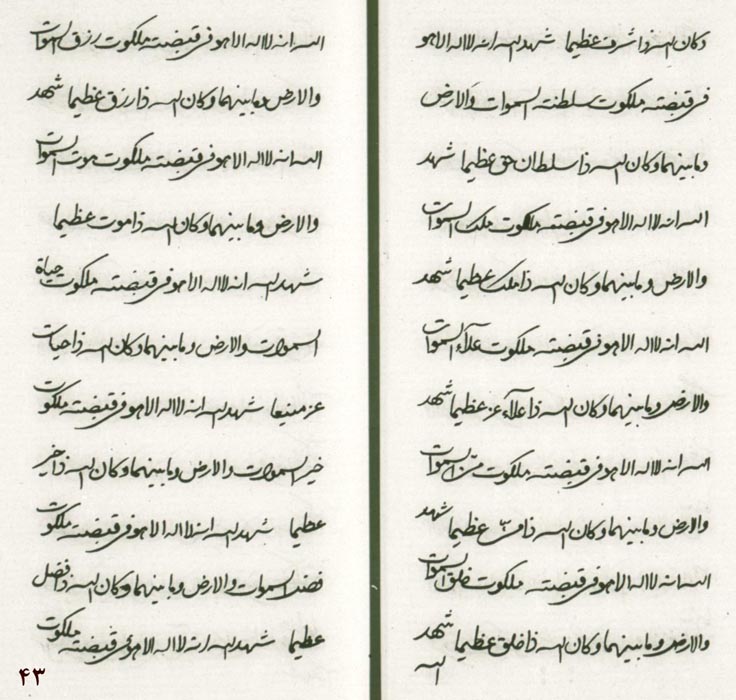 وكان الله ذا شرف عظيما شهد الله انه لا اله الا هو
في قبضته ملكوت سلطنة السموات والارض
وما بينهما وكان الله ذا سلطان حق عظيما شهد
الله انه لا اله الا هو في قبضته ملكوت ملك السموات
والارض وما بينهما وكان الله ذا ملك عظيما شهد
الله انه لا اله الا هو في قبضته ملكوت علاء السموات
والارض وما بينهما وكان الله ذا علاء عز عظيما شهد
الله انه لا اله الا هو في قبضته ملكوت من السموات
والارض وما بينهما وكان الله ذا من عظيما شهد
الله انه لا اله الا هو في قبضته ملكوت خلق السموات
والارض وما بينهما وكان الله ذا خلق عظيما شهد
الله
الله انه لا اله الا هو في قبضته ملكوت رزق السموات
والارض وما بينهما وكان الله ذا رزق عظيما شهد
الله انه لا اله الا هو في قبضته ملكوت موت السموات
والارض وما بينهما وكان الله ذا موت عظيما
شهد الله انه لا اله الا هو في قبضته ملكوت حياة
السموات والارض وما بينهما وكان الله ذا حيات
عز منيعا شهد الله انه لا اله الا هو في قبضته ملكوت
خير السموات والارض وما بينهما وكان الله ذا خير
عظيما شهد الله انه لا اله الا هو في قبضته ملكوت
فضل السموات والارض وما بينهما وكان الله ذا فضل
عظيما شهد الله انه لا اله الا هو في قبضته ملكوت
۴۳